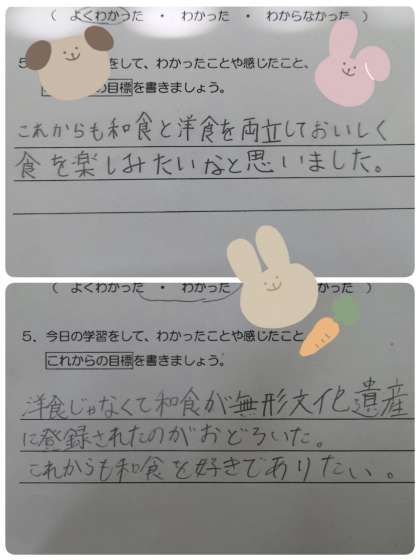 ( よくわかった ・ わかった ・ わからなかった )
5 をして、わかったことや感じたこと、
の目標を書きましょう。
これからも和食と洋食を両立しておいしく
食を楽しみたいなと思いました。
( よくわかった ・ わかった かった )
5、今日の学習をして、わかったことや感じたこと
これからの目標を書きましょう。
洋食じゃなくて和食が無形文化遺産
に登録されたのがおどろいた。
これからも和食を好きでありたい。